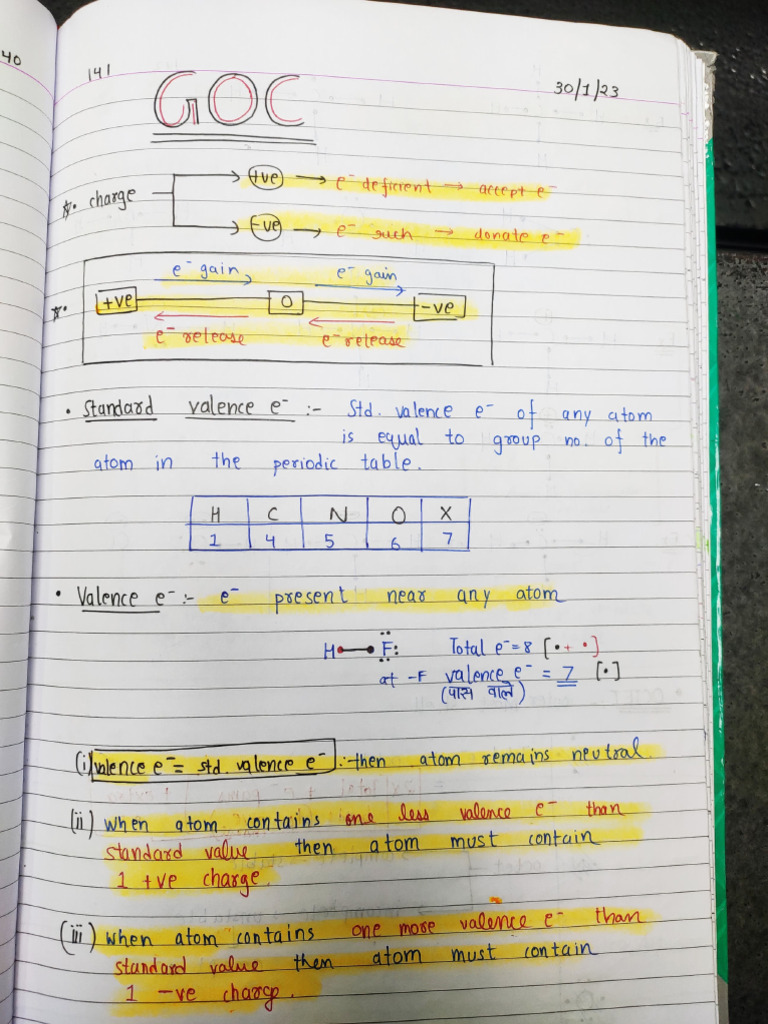 40
141
30/1/23
GOC
charge
+ve → e⁻ deficient → accept e⁻
-ve → e⁻ such → donate e⁻
e⁻ gain e⁻ gain
+ve 0 -ve
e⁻ release e⁻ release
• Standard valence e⁻ :- Std. valence e⁻ of any atom
is equal to group no. of the
atom in the periodic table.
H C N O X
1 4 5 6 7
• Valence e⁻ :- e⁻ present near any atom
H F: Total e⁻ = 8 [• + •]
at -F valence e⁻ = 7 [•]
(पास वाले)
(i) valence e⁻ = std. valence e⁻ :- then atom remains neutral.
(ii) when atom contains one less valence e⁻ than
standard value then atom must contain
1 +ve charge.
(iii) when atom contains one more valence e⁻ than
standard value then atom must contain
1 -ve charge.